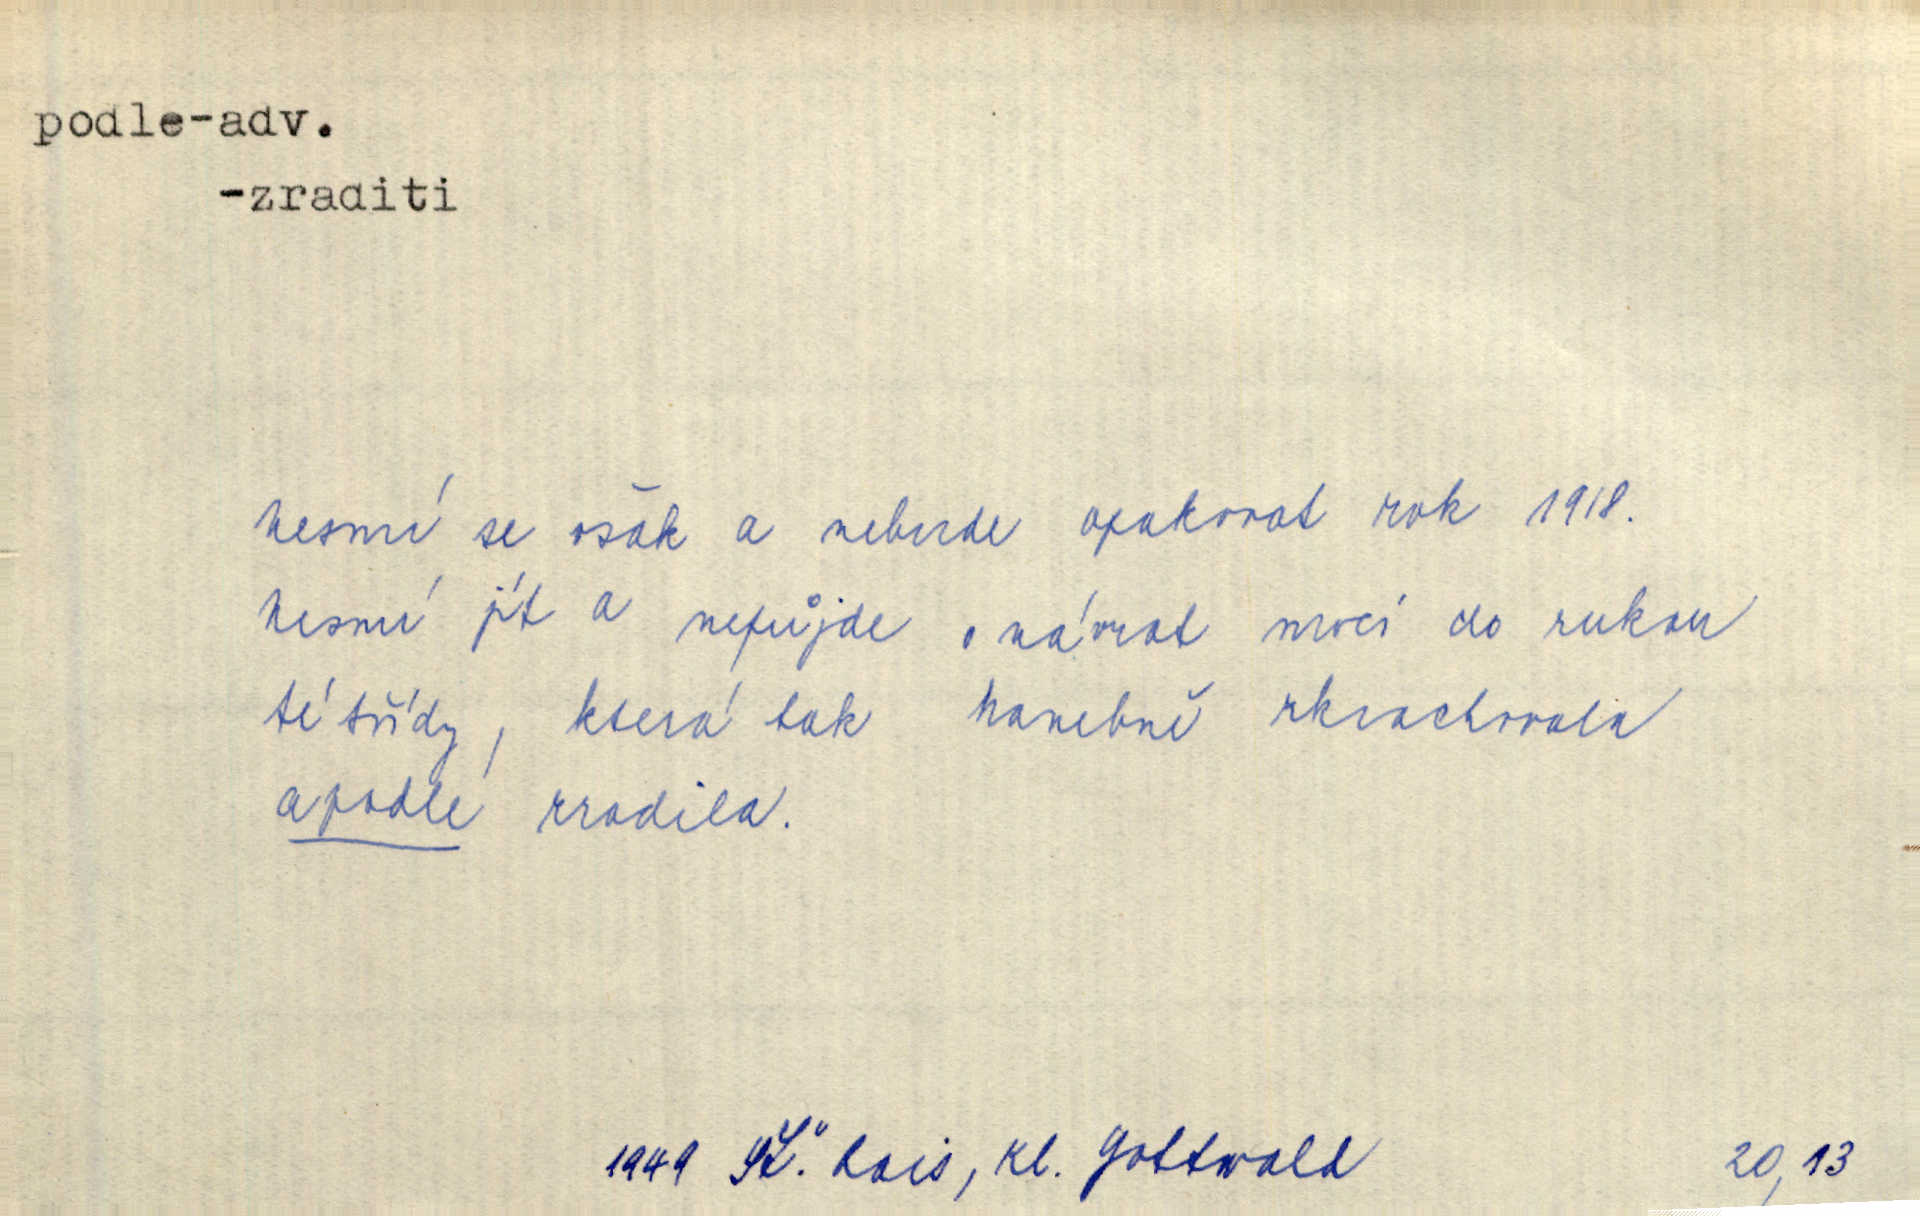 podle-adv.
-zraditi
Nesmí se však a nebude opakovat rok 1918.
Nesmí jít a nepůjde o návrat moci do rukou
té třídy, která tak hanebně zkrachovala
a podle zradila.
1949 Cais, Kl. Gottwald 20,13